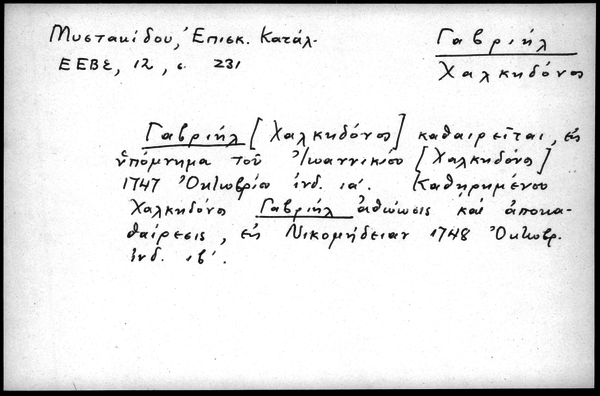 Μυστακίδου, Ἐπισκ. Κατάλ.
ΕΕΒΣ, 12, σ. 231
Γαβριήλ
Χαλκηδόνος
Γαβριήλ [Χαλκηδόνος] καθαιρεῖται, εἰς
ὑπόμνημα τοῦ Ἰωαννικίου [Χαλκηδόνος]
1747 Ὀκτωβρίου ἰνδ. ια΄. Καθηρημένου
Χαλκηδόνος Γαβριήλ ἀθώωσις καὶ ἀποκα-
θαίρεσις, εἰς Νικομήδειαν 1748 Ὀκτωβρ.
ἰνδ. ιβ΄.